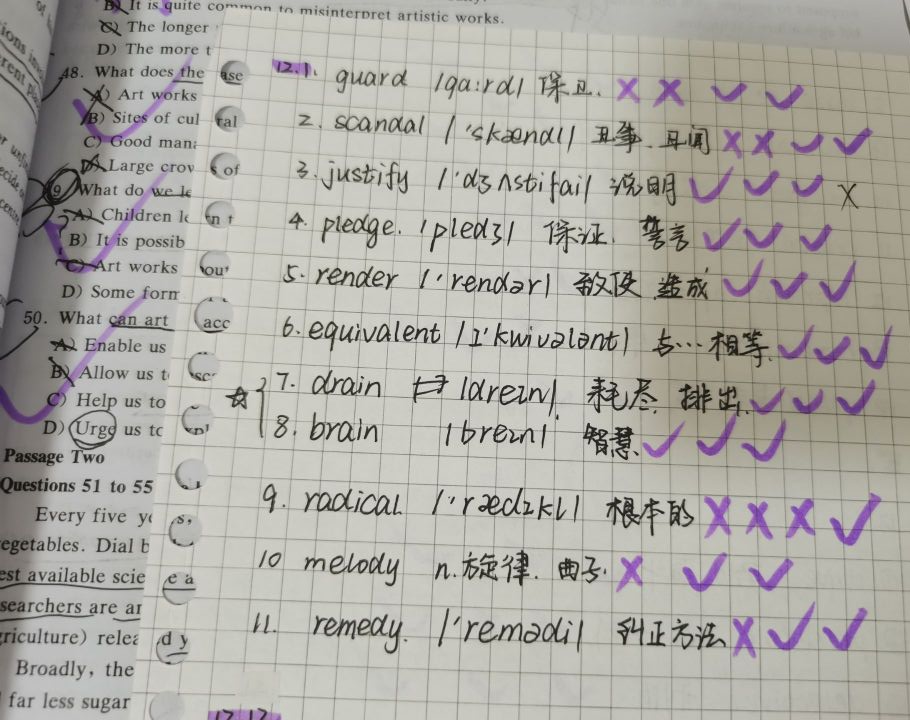 B) It is quite common to misinterpret artistic works.
C) The longer
D) The more t
48. What does the
A) Art works
B) Sites of cul
C) Good man
D) Large crov
What do we le
A) Children le
B) It is possib
C) Art works
D) Some form
50. What can art
A) Enable us
B) Allow us t
C) Help us to
D) Urge us to
Passage Two
Questions 51 to 55
Every five ye
egetables. Dial b
est available scie
searchers are ar
griculture) relea
Broadly, the
far less sugar
ase
ral
s of
n t
out
acc
sc
s,
e a
d y
12.1. guard /gɑ:rd/ 保卫. ✗ ✗ ✓ ✓
2. scandal /'skændl/ 丑事. 丑闻 ✗ ✗ ✓ ✓
3. justify /'dʒʌstifai/ 说明 ✓ ✓ ✓ ✗
4. pledge. /pledʒ/ 保证. 誓言 ✓ ✓ ✓
5. render /'rendər/ 致使 造成 ✓ ✓ ✓
6. equivalent /ɪ'kwivələnt/ 与…相等. ✓ ✓ ✓
7. drain /dreɪn/. 耗尽. 排出. ✓ ✓ ✓
8. brain /breɪn/ 智慧. ✓ ✓ ✓
9. radical /'rædɪkl/ 根本的 ✗ ✗ ✗ ✓
10 melody n. 旋律. 曲子. ✗ ✓ ✓
11. remedy. /'remədi/ 纠正方法 ✗ ✓ ✓
12.12